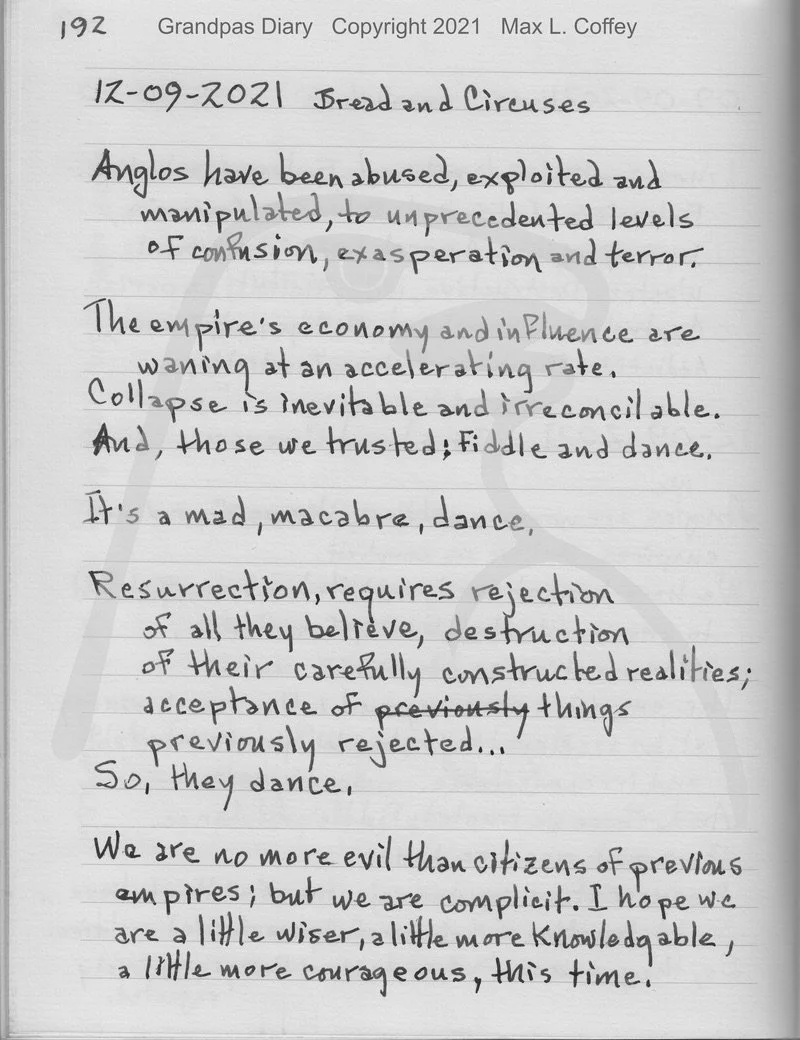 192 Grandpas Diary Copyright 2021 Max L. Coffey
12-09-2021 Bread and Circuses
Anglos have been abused, exploited and
manipulated, to unprecedented levels
of confusion, exasperation and terror.
The empire's economy and influence are
waning at an accelerating rate.
Collapse is inevitable and irreconcilable.
And, those we trusted; fiddle and dance.
It's a mad, macabre, dance,
Resurrection, requires rejection
of all they believe, destruction
of their carefully constructed realities;
acceptance of previously things
previously rejected...
So, they dance,
We are no more evil than citizens of previous
empires; but we are complicit. I hope we
are a little wiser, a little more knowledgable,
a little more courageous, this time.